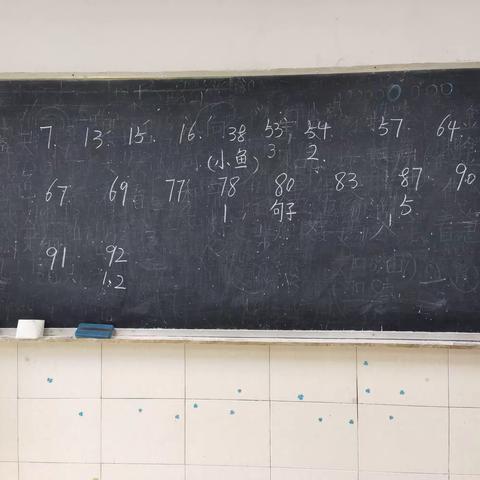 7. 13. 15. 16. 38 53 54 57. 64.
(小鱼) 3. 2.
67 69 77 78 80 83 87 90
1 句子 5.
91 92
1.2